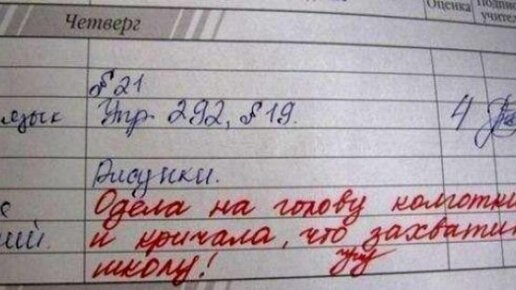 Оценка Подпись учите
Четверг
§21
язык Упр 292, §19. 4
Рисунки.
Одела на голову колготки
и кричала, что захватит
школу!